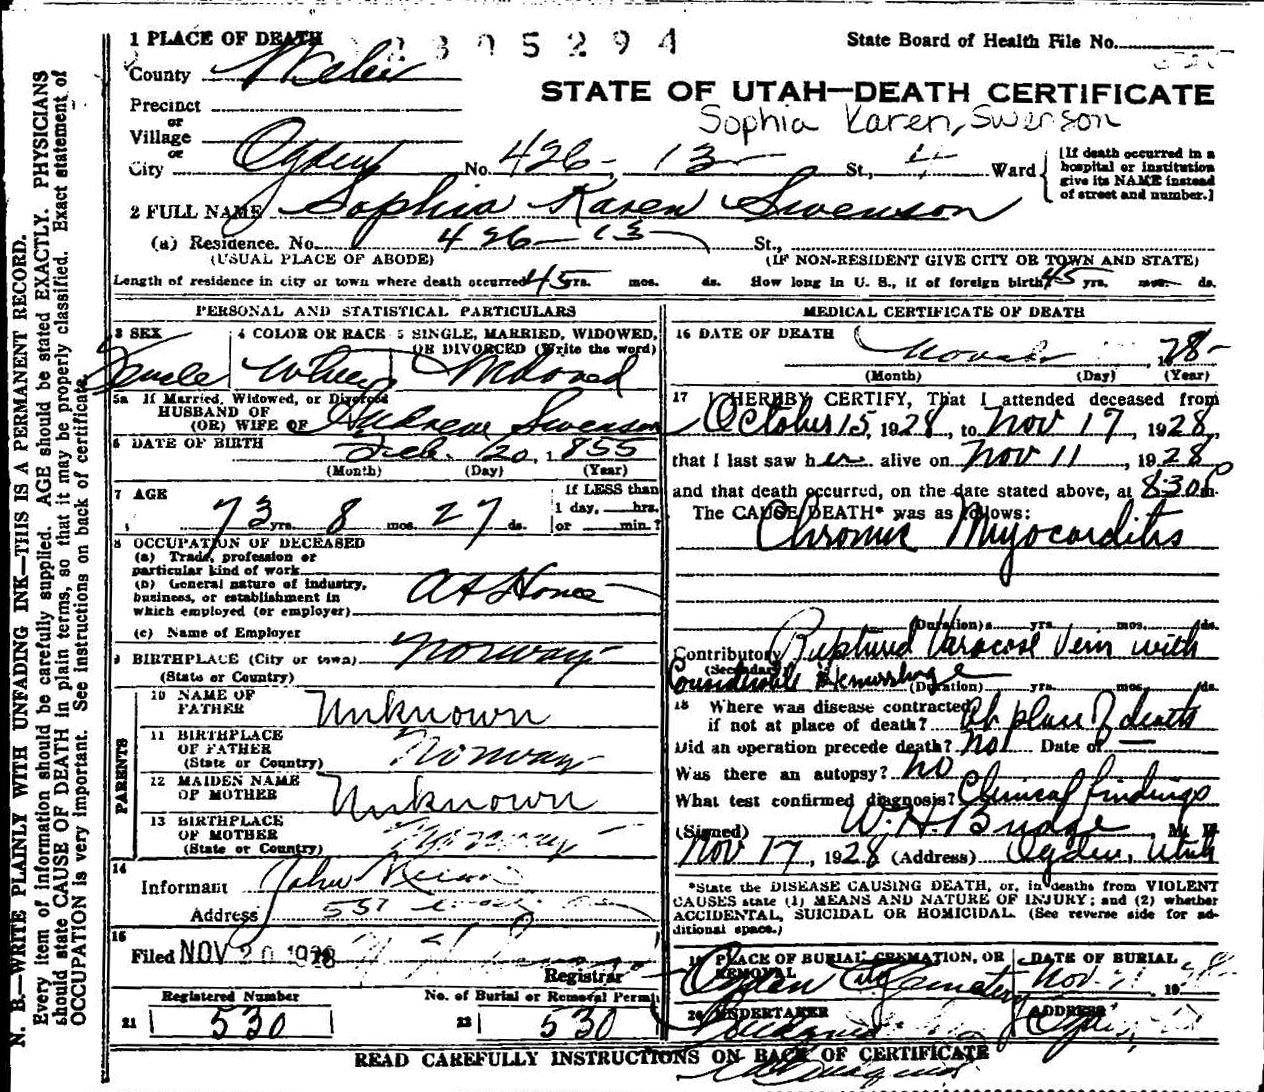 1 PLACE OF DEATH
2305294
State Board of Health File No.
County Weber
STATE OF UTAH—DEATH CERTIFICATE
Sophia Karen, Swenson
Precinct
or
Village
or
City Ogden No. 426- 13 St., 4 Ward
[If death occurred in a
hospital or institution
give its NAME instead
of street and number.]
2 FULL NAME Sophia Karen Swenson
(a) Residence. No. 426- 13 St.,
(USUAL PLACE OF ABODE) (IF NON-RESIDENT GIVE CITY OR TOWN AND STATE)
Length of residence in city or town where death occurred 45 yrs. mos. ds. How long in U. S., if of foreign birth? 45 yrs. mos. ds.
PERSONAL AND STATISTICAL PARTICULARS
3 SEX
4 COLOR OR RACE
5 SINGLE, MARRIED, WIDOWED,
OR DIVORCED (Write the word)
Female White Widowed
5a If Married, Widowed, or Divorced
HUSBAND OF
(OR) WIFE OF Andrew Swenson
6 DATE OF BIRTH Feb. 20, 1855
(Month) (Day) (Year)
7 AGE
73 yrs. 8 mos. 27 ds.
If LESS than
1 day, hrs.
or min.?
8 OCCUPATION OF DECEASED
(a) Trade, profession or
particular kind of work
(b) General nature of industry,
business, or establishment in
which employed (or employer) At Home
(c) Name of Employer
9 BIRTHPLACE (City or town) Norway
(State or Country)
PARENTS
10 NAME OF
FATHER Unknown
11 BIRTHPLACE
OF FATHER Norway
(State or Country)
12 MAIDEN NAME
OF MOTHER Unknown
13 BIRTHPLACE
OF MOTHER Norway
(State or Country)
14
Informant John
Address 557
15
Filed NOV 20 1928
Registrar
Registered Number
21 530
No. of Burial or Removal Permit
22 530
MEDICAL CERTIFICATE OF DEATH
16 DATE OF DEATH 28
(Month) (Day) (Year)
17 I HEREBY CERTIFY, That I attended deceased from
October 15, 1928, to Nov 17, 1928,
that I last saw her alive on Nov 11, 1928
and that death occurred, on the date stated above, at 8:30 P m.
The CAUSE DEATH* was as follows:
Chronic Myocarditis
(Duration) yrs. mos. ds.
Contributory Ruptured Varacose Vein with
(Secondary)
Considerable Hemorrhage
(Duration) yrs. mos. ds.
18 Where was disease contracted
if not at place of death? At place of death
Did an operation precede death? No Date of —
Was there an autopsy? No
What test confirmed diagnosis? Clinical findings
(Signed) W. H. Budge M. D.
Nov 17, 1928 (Address) Ogden, Utah
*State the DISEASE CAUSING DEATH, or, in deaths from VIOLENT
CAUSES state (1) MEANS AND NATURE OF INJURY; and (2) whether
ACCIDENTAL, SUICIDAL OR HOMICIDAL. (See reverse side for ad-
ditional space.)
19 PLACE OF BURIAL, CREMATION, OR
REMOVAL
Ogden City Cemetery
DATE OF BURIAL
Nov. 19
20 UNDERTAKER
ADDRESS
Ogden
READ CAREFULLY INSTRUCTIONS ON BACK OF CERTIFICATE
N. B.—WRITE PLAINLY WITH UNFADING INK—THIS IS A PERMANENT RECORD.
Every item of information should be carefully supplied. AGE should be stated EXACTLY. PHYSICIANS
should state CAUSE OF DEATH in plain terms, so that it may be properly classified. Exact statement of
OCCUPATION is very important. See instructions on back of certificate.